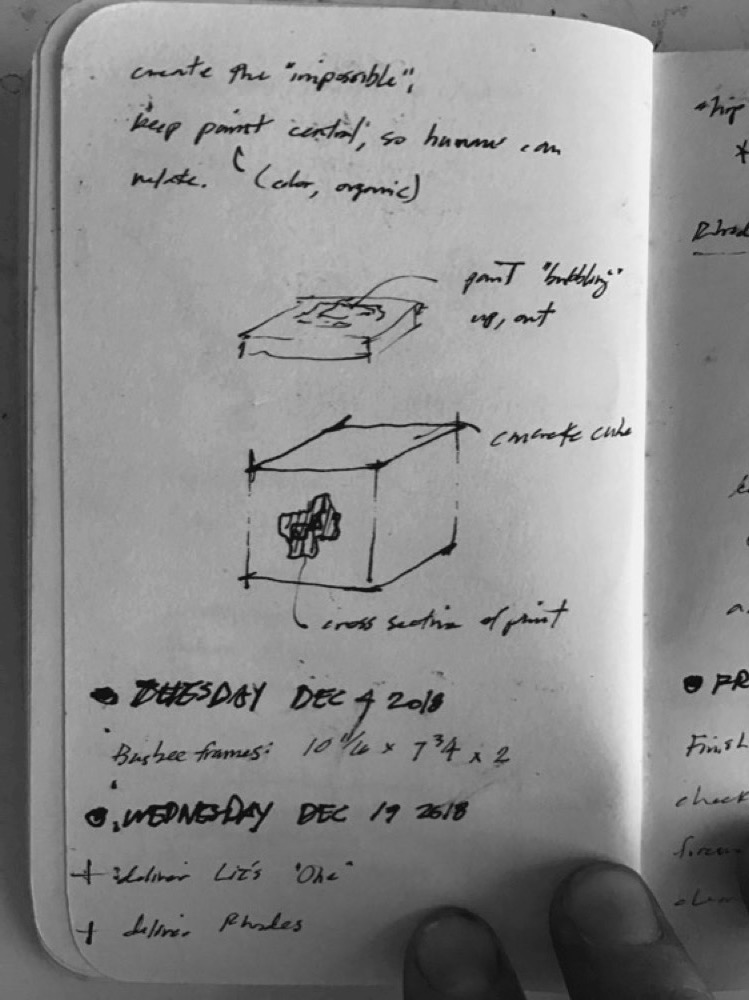 create the "impossible",
keep paint central, so humans can
relate. (color, organic)
paint "bubbling"
up, out
concrete cube
cross section of paint
TUESDAY DEC 4 2018
Busbee frames: 10 11/16 x 7 3/4 x 2
WEDNESDAY DEC 19 2018
+ deliver Liz's "One"
+ deliver Rhodes
ship
*
FR
Finish
check